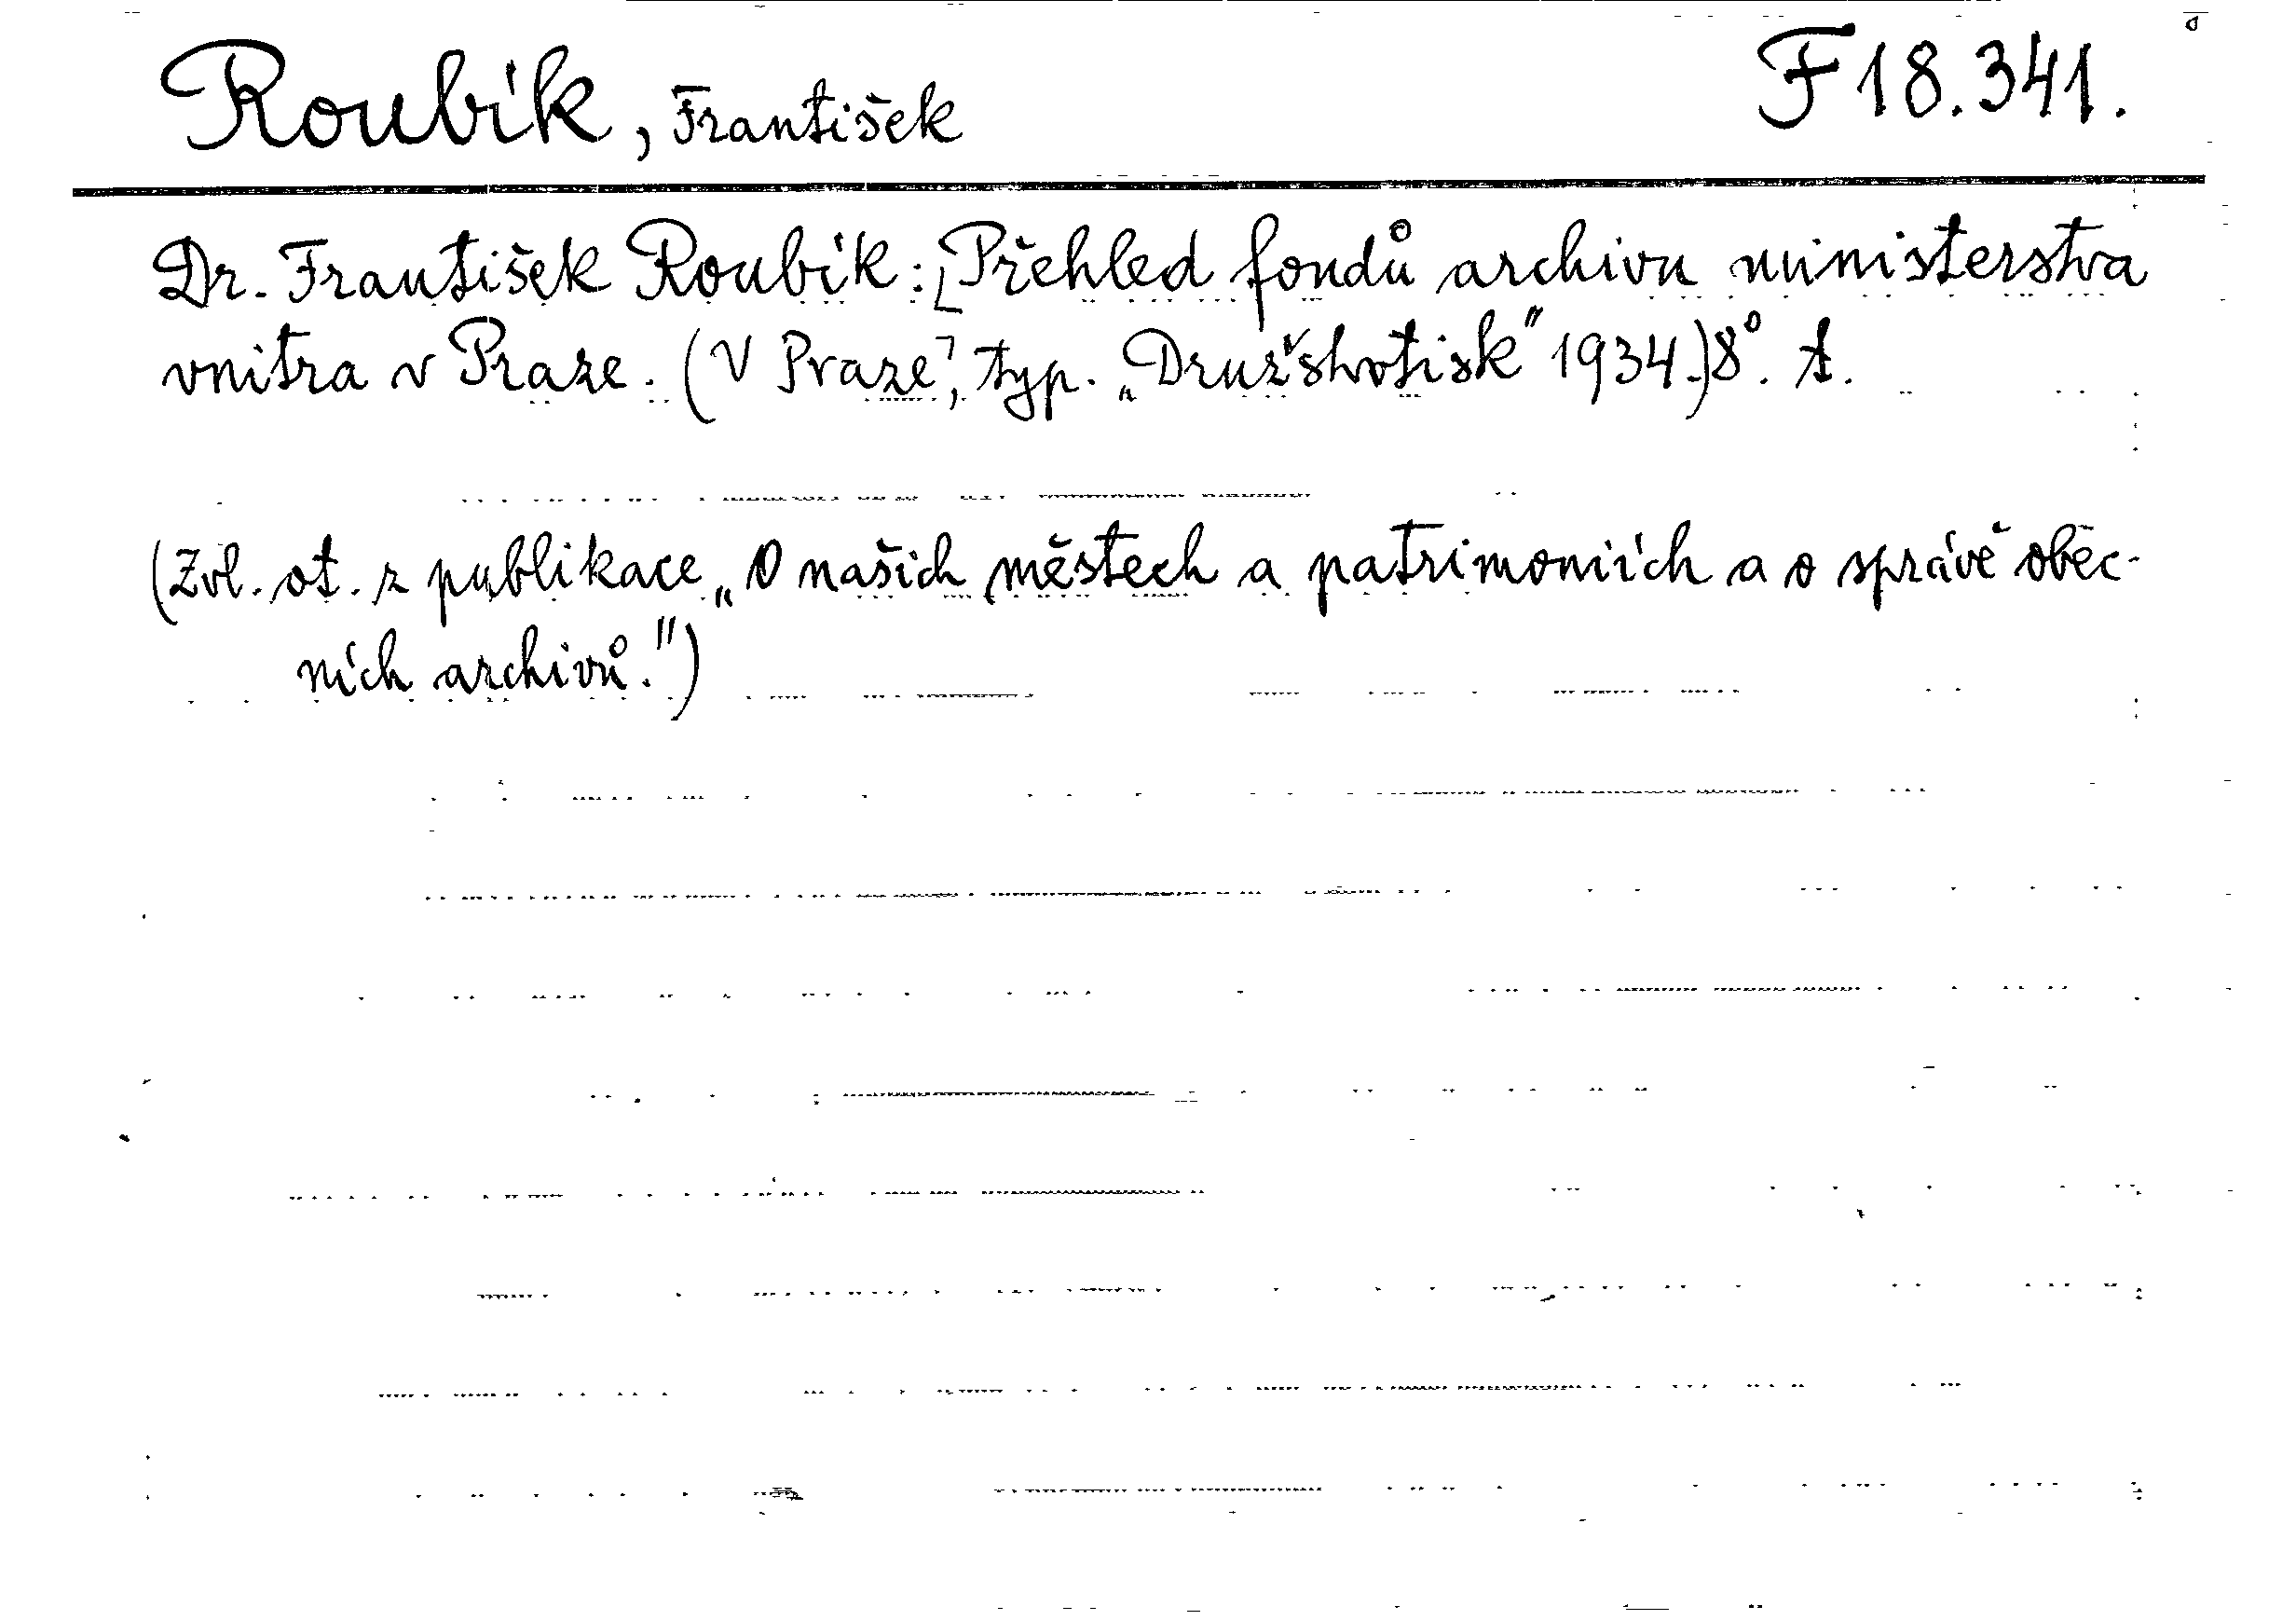 Roubík, František
F 18.341.
Dr. František Roubík: [Přehled fondů archivu ministerstva
vnitra v Praze. (V Praze], typ. „Družstvotisk" 1934.) 8°. A.
(Zvl. ot. z publikace „O našich městech a patrimoniích a o správě obec-
ních archivů.")